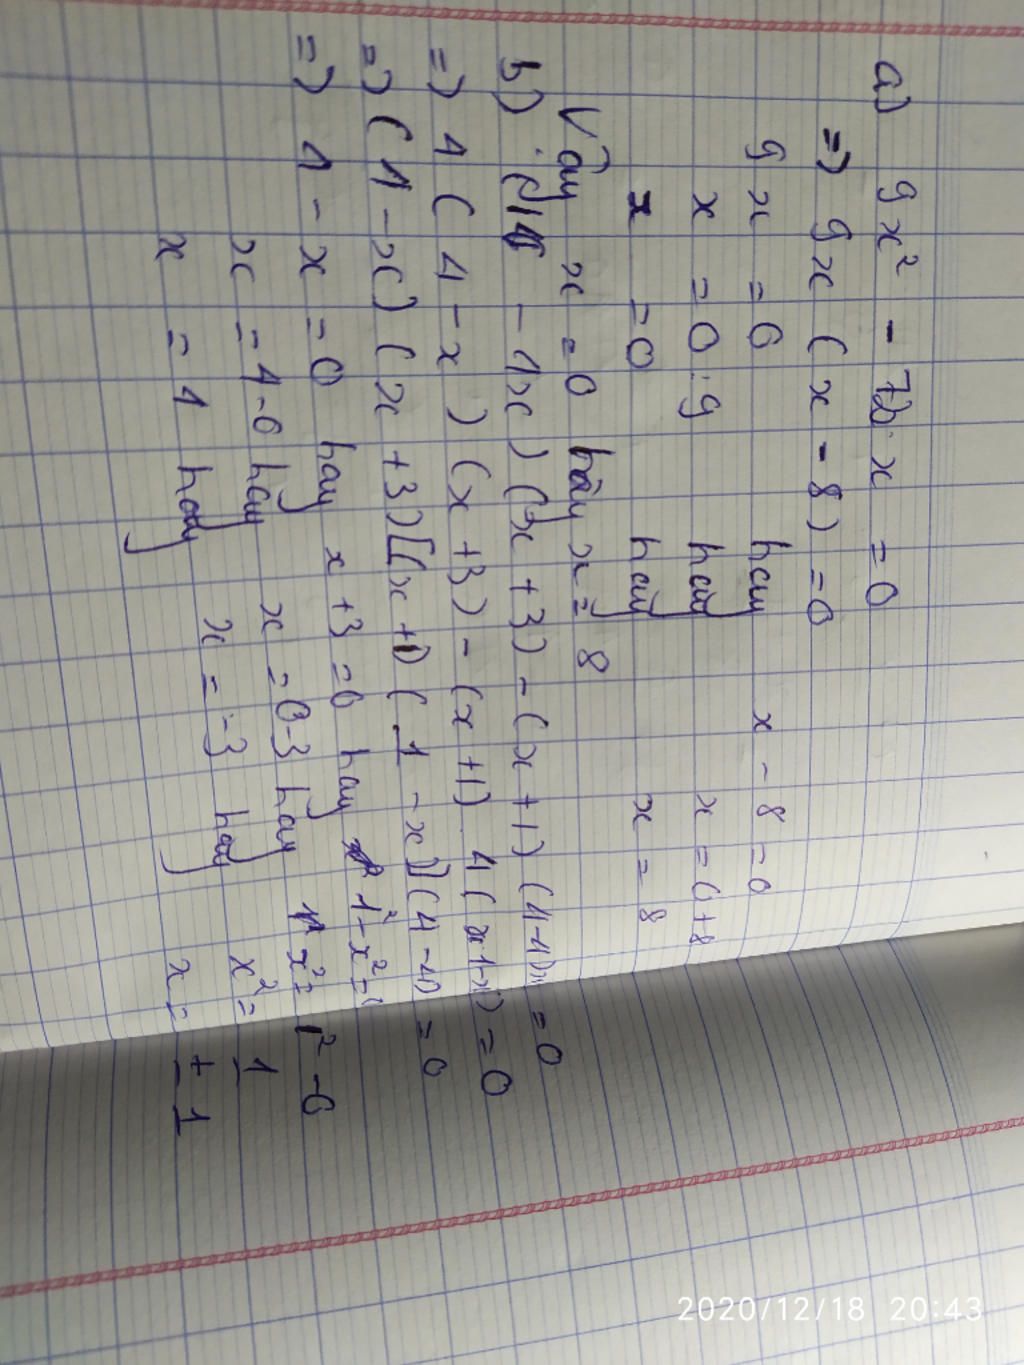 a) 9x² - 72x = 0
=) 9x (x - 8) = 0
9x = 0 hay x - 8 = 0
x = 0 : 9 hay x = 0 + 8
x = 0 hay x = 8
Vậy x = 0 hay x = 8
b) - 1x) (x + 3) - (x + 1) (4 - 4) = 0
=) 4 (4 - x) (x + 3) - (x + 1) 4 ( 1 - x) = 0
=) (4 - x) (x + 3) [(x + 1) (1 - x)] (4 - 4) = 0
=) 4 - x = 0 hay x + 3 = 0 hay 1² - x² = 0
x = 4 - 0 hay x = 0 - 3 hay x² = 1² - 0
x = 4 hay x = -3 hay x² = 1
x = ± 1
2020/12/18 20:43